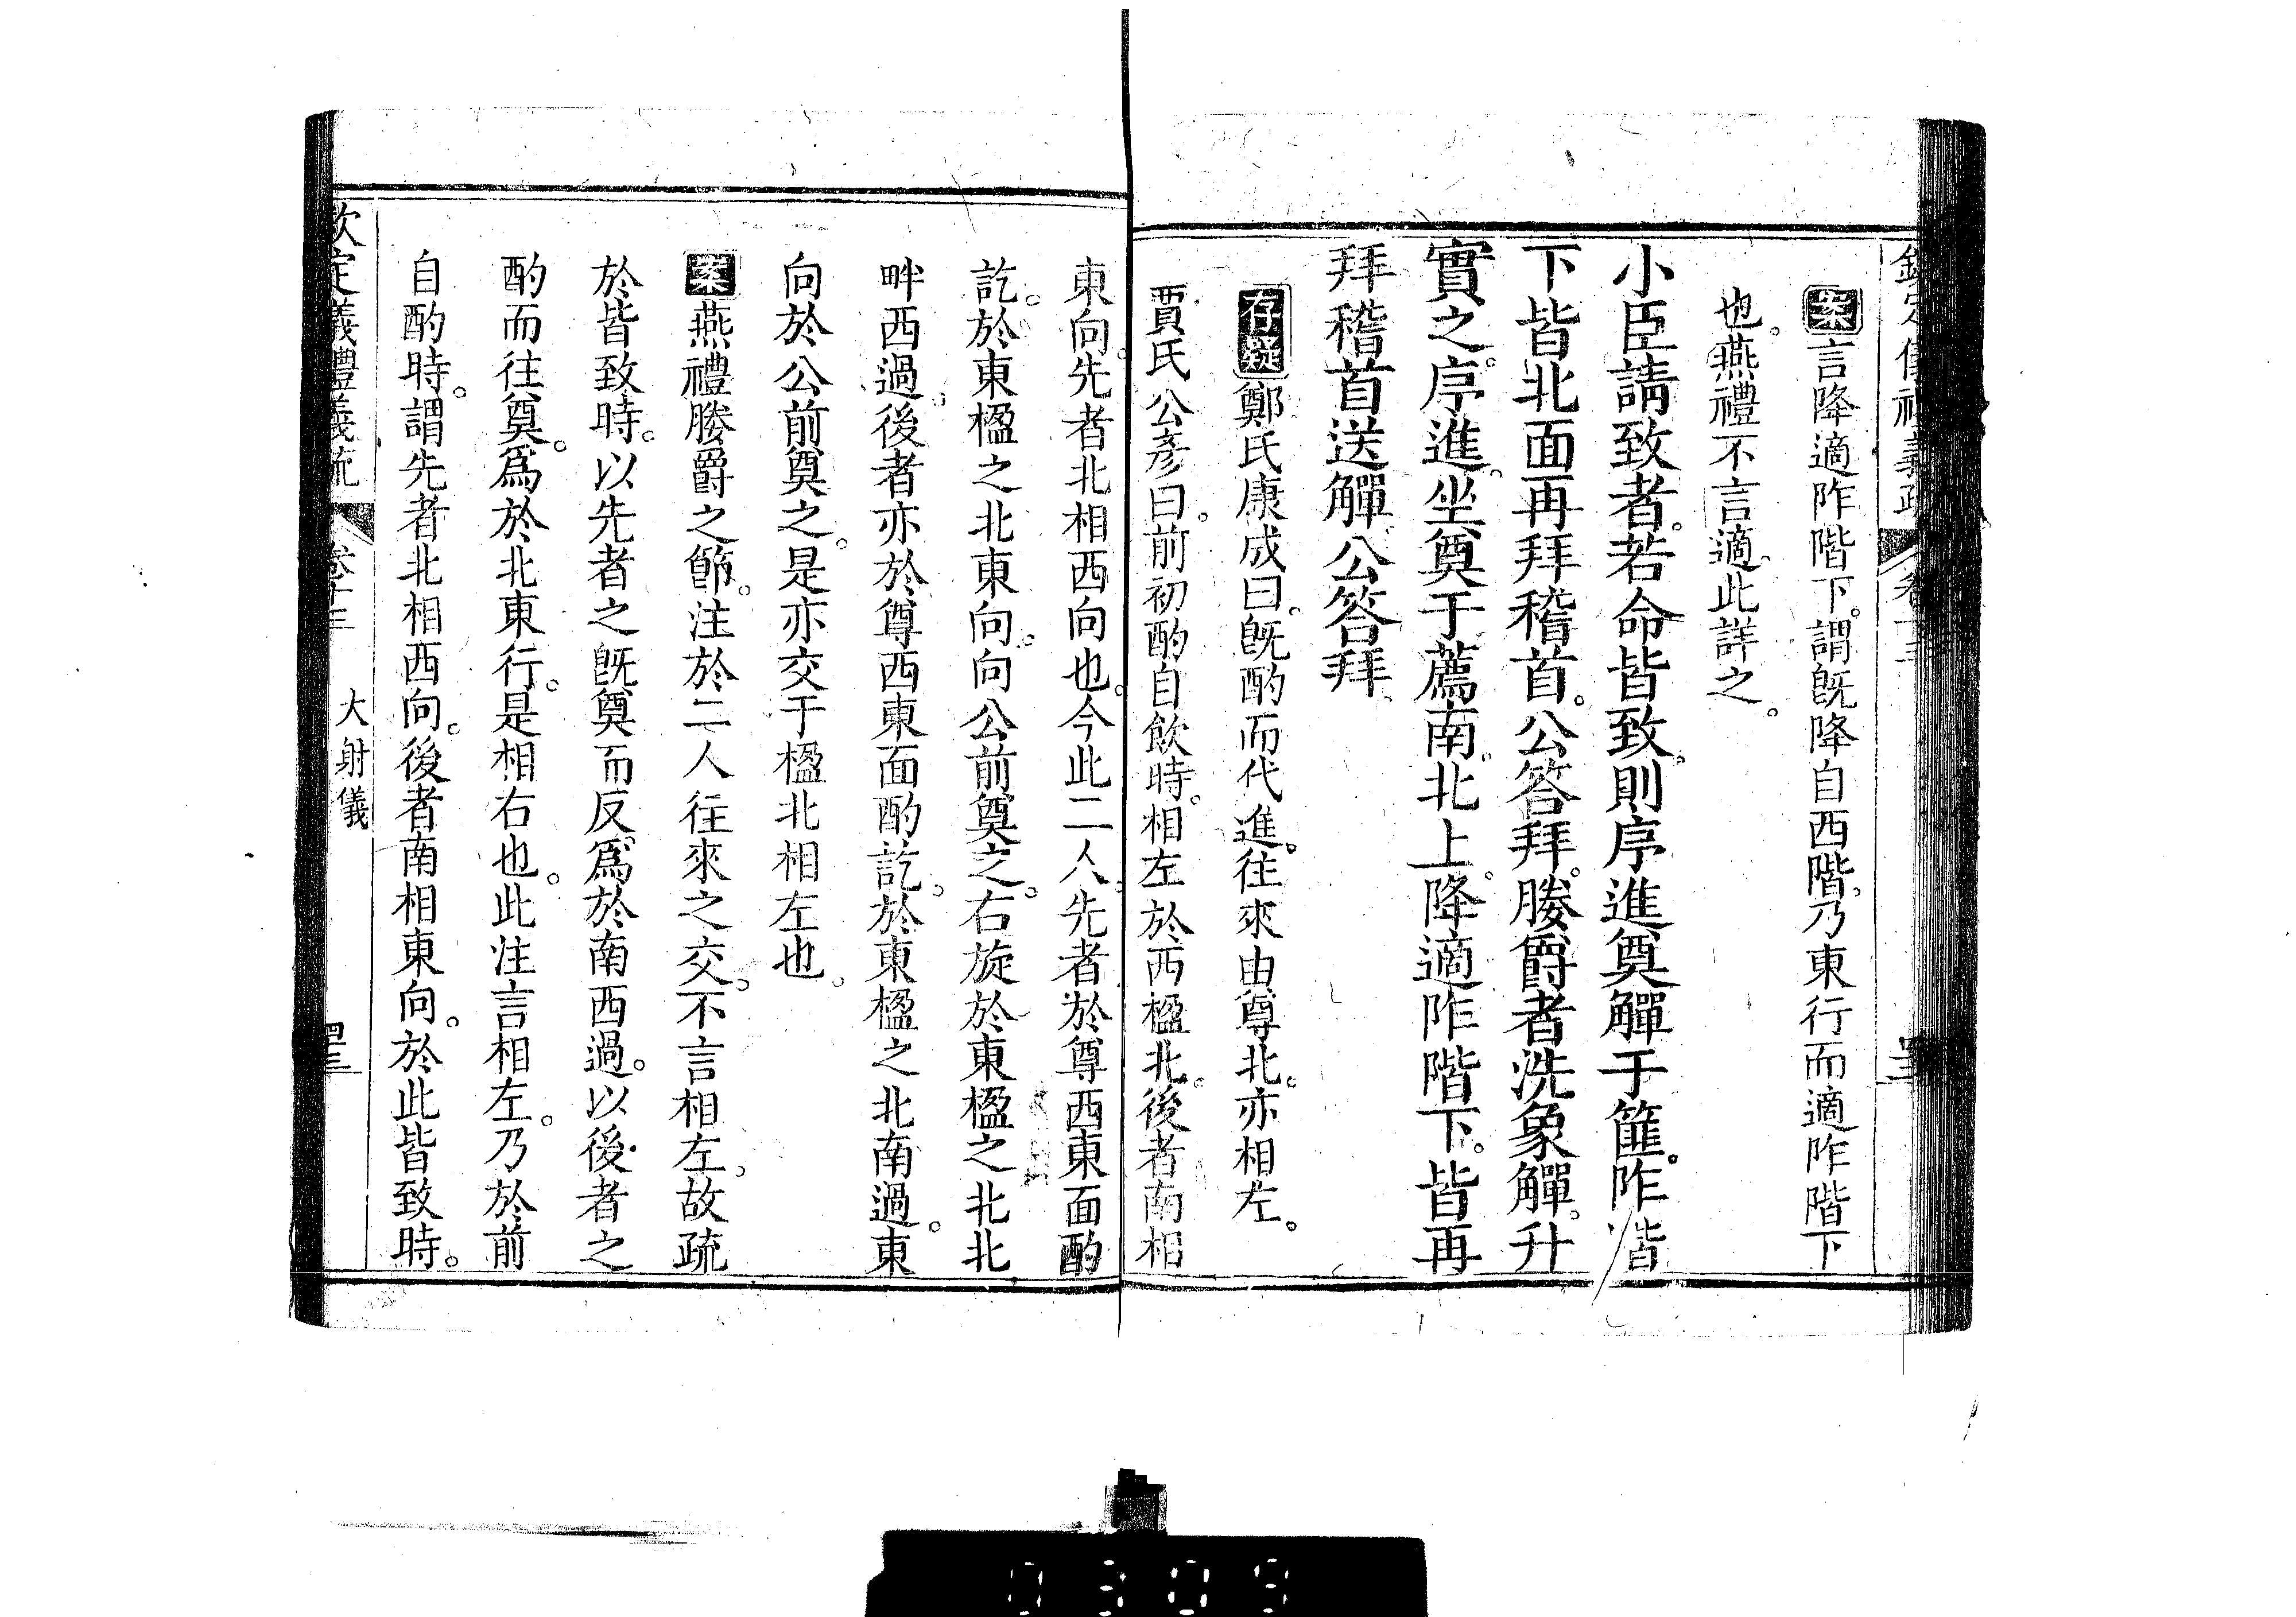 案言降適阼階下。謂旣降自西階。乃東行而適阼階下
也。燕禮不言適。此詳之。
小臣請致者。若命皆致。則序進奠觶于篚。阼階
下皆北面再拜稽首。公答拜。媵爵者洗象觶。升
實之。序進。坐奠于薦南。北上。降適阼階下。皆再
拜稽首送觶。公答拜。
存疑鄭氏康成曰。旣酌而代進。往來由尊北。亦相左。
賈氏公彥曰。前初酌自飮時。相左於西楹北。後者南相
東向。先者北相西向也。今此二人先者於尊西東面酌
訖。於東楹之北東向。向公前奠之。右旋於東楹之北北
畔西過。後者亦於尊西東面酌訖。於東楹之北南過。東
向於公前奠之。是亦交于楹北相左也。
案燕禮媵爵之節。注於二人往來之交。不言相左。故疏
於皆致時。以先者之旣奠而反。爲於南西過。以後者之
酌而往奠。爲於北東行。是相右也。此注言相左。乃於前
自酌時。謂先者北相西向。後者南相東向。於此皆致時。
欽定儀禮義疏 卷十三 大射儀 四三
0309